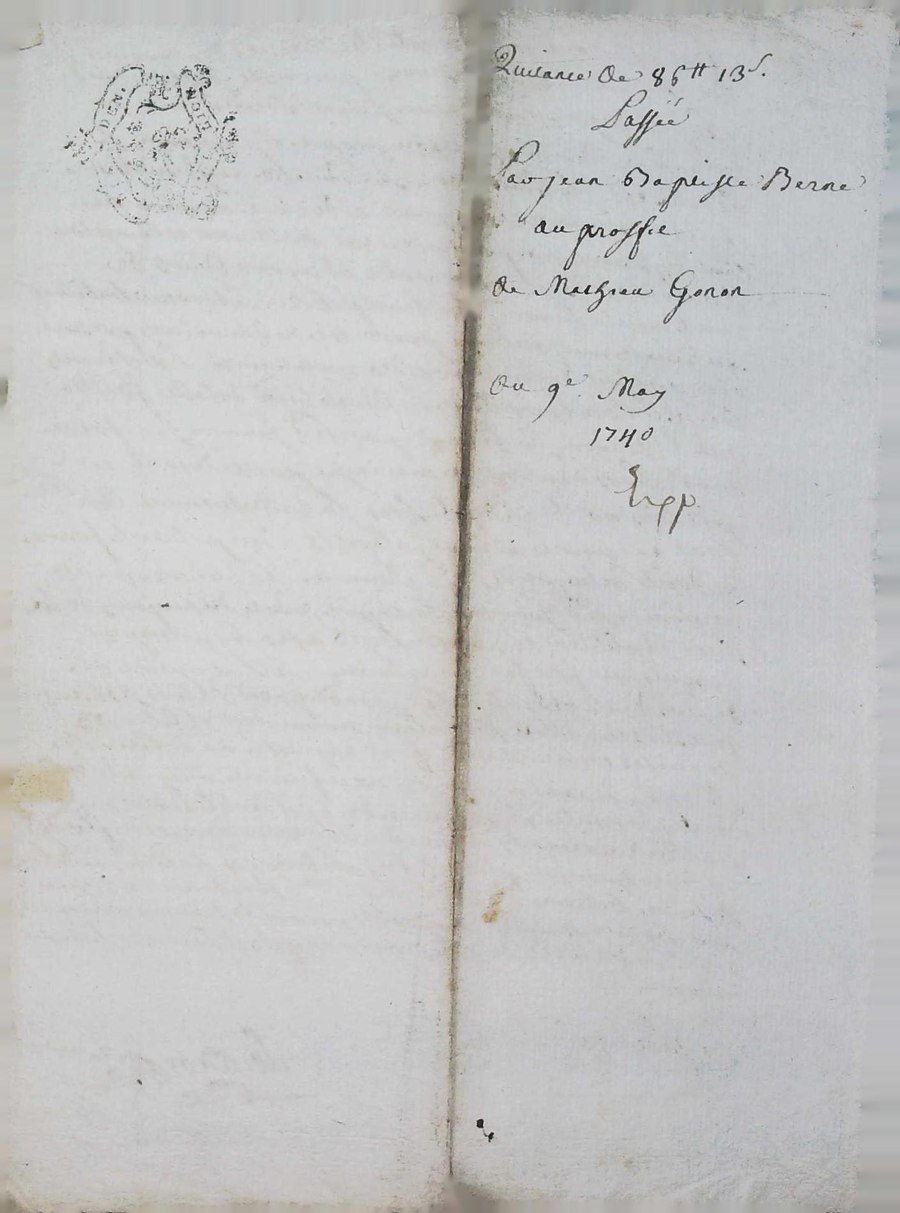 Quitance de 86tt 13s.
Passée
Par jean Baptiste Berne
au proffit
de Mathieu Gonon
Du 9e May
1740
Exp